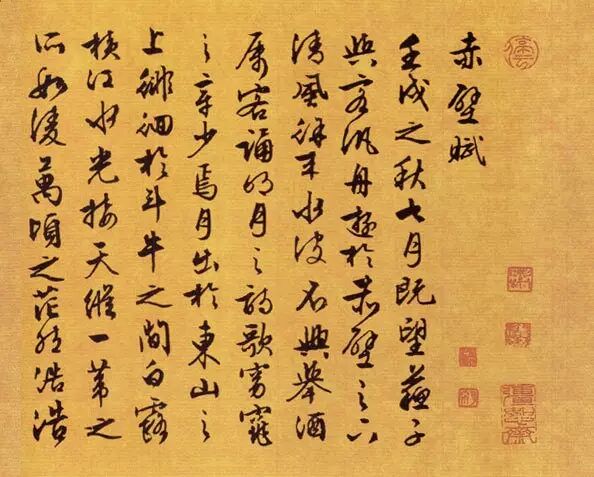 赤壁賦
壬戌之秋七月既望蘇子
與客汎舟遊於赤壁之下
清風徐来水波不興舉酒
属客誦明月之詩歌窈窕
之章少焉月出於東山之
上徘徊於斗牛之間白露
横江水光接天縱一葦之
所如凌萬頃之茫然浩浩